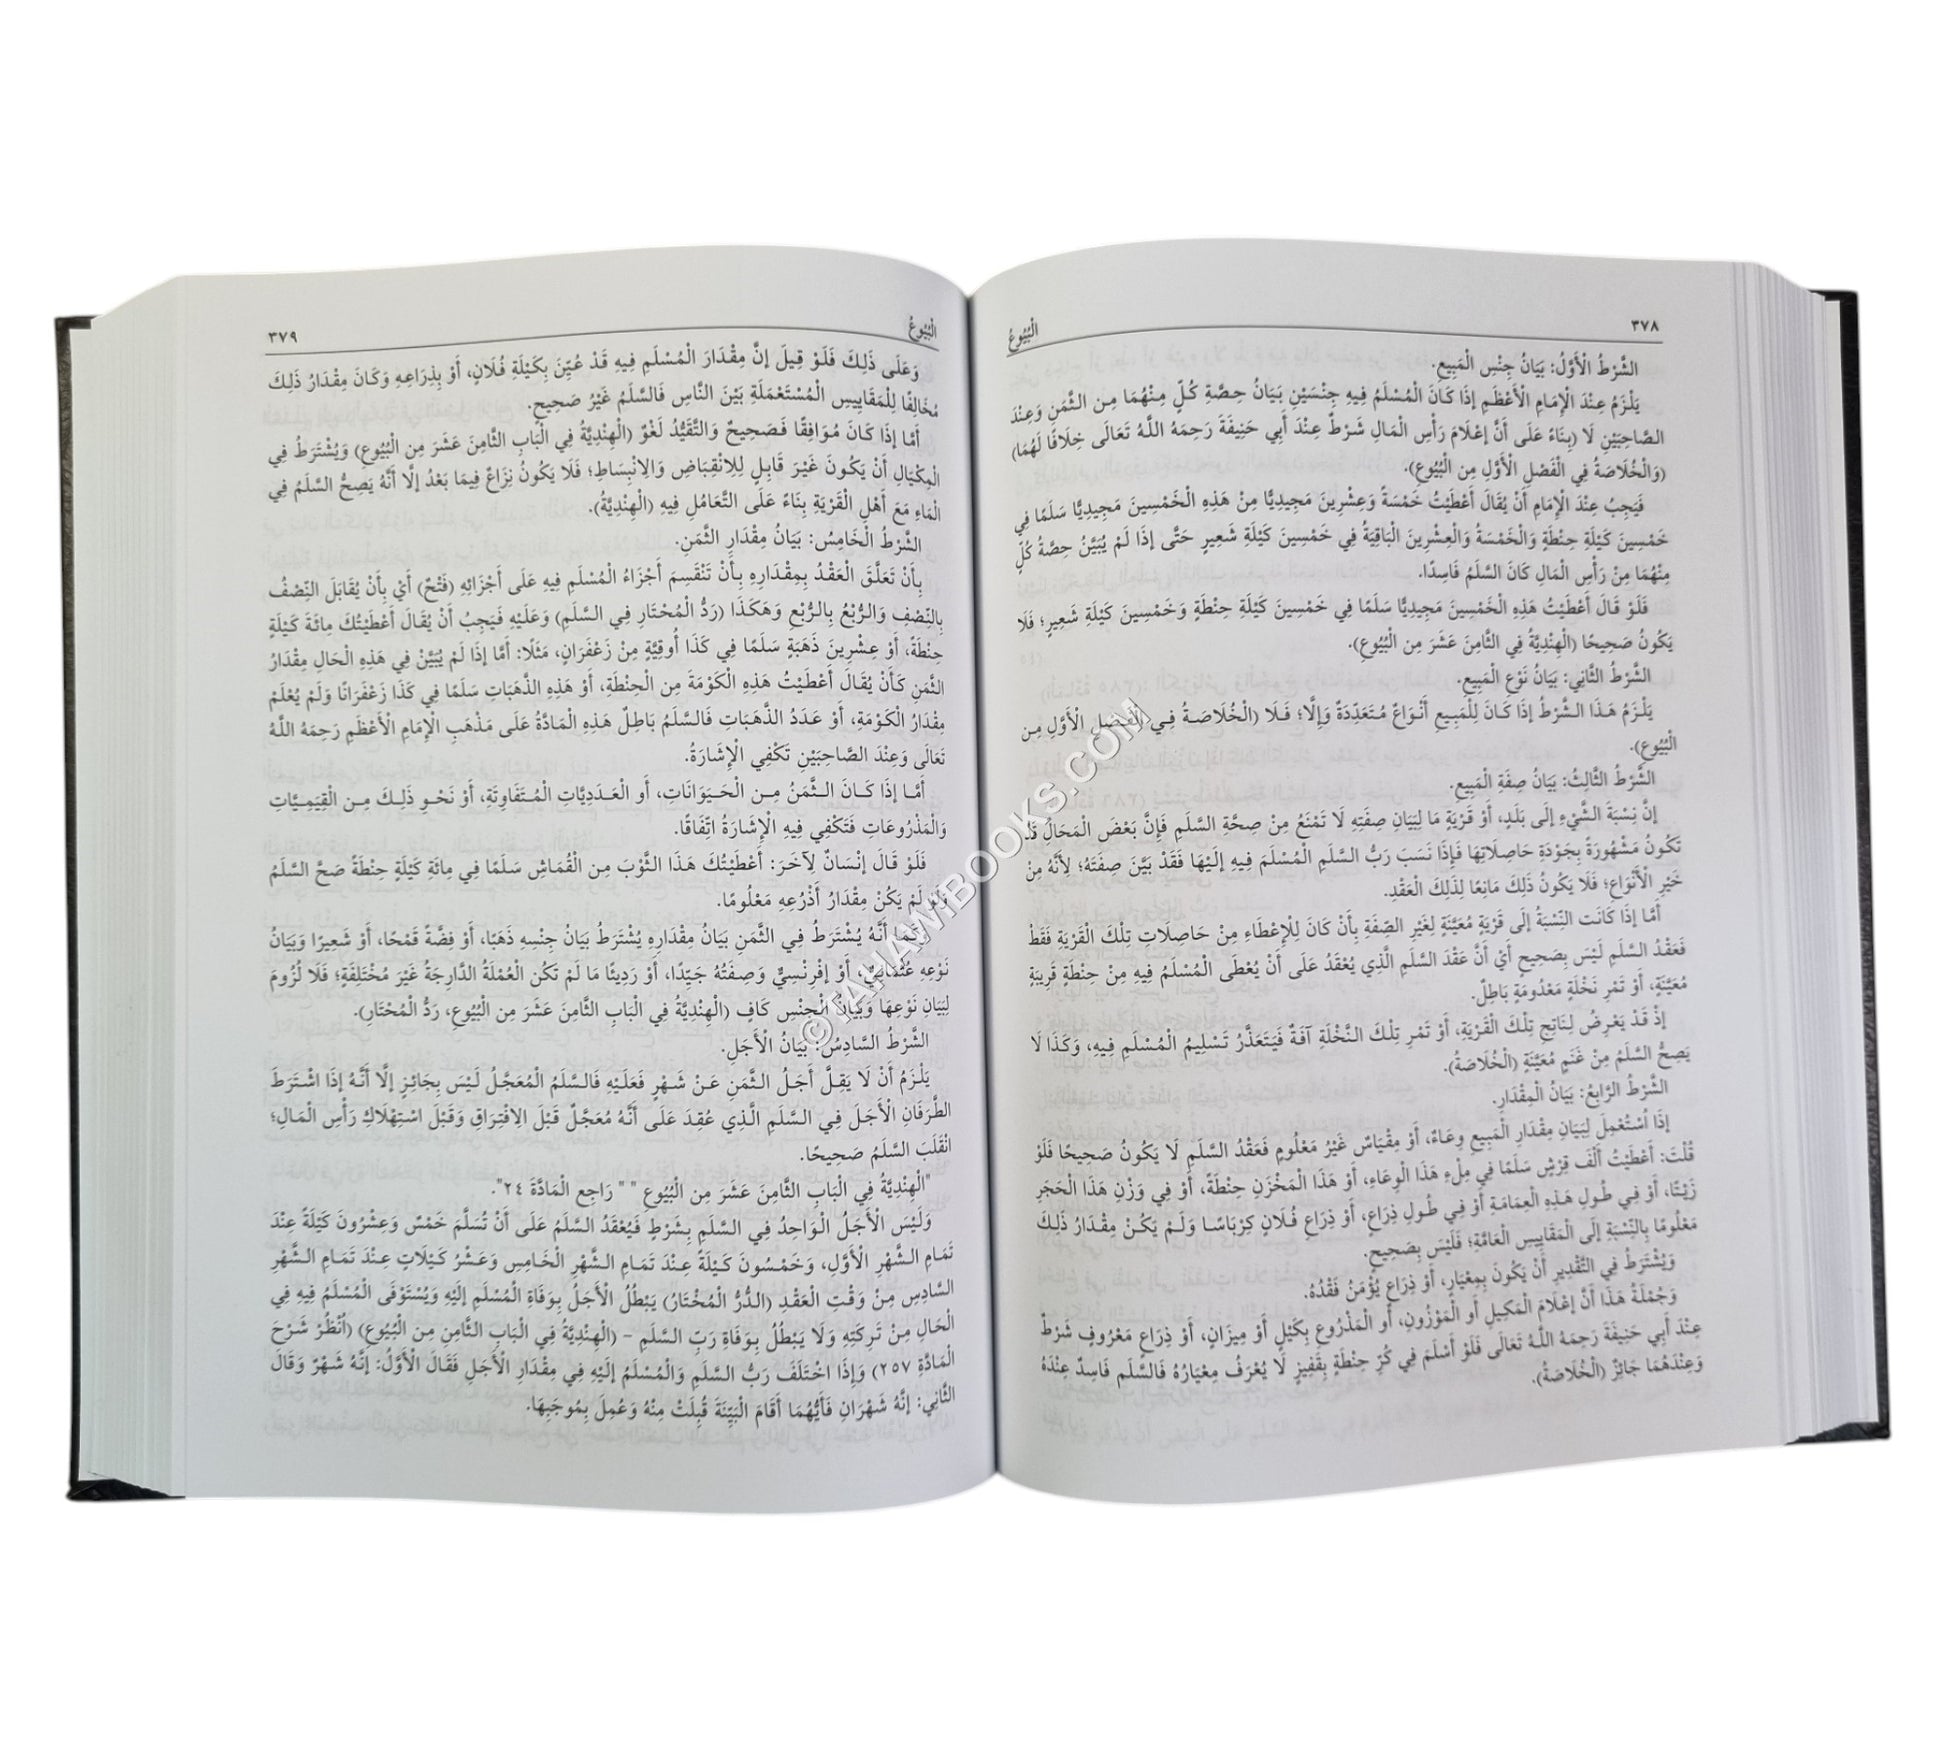 ٣٧٨ الْبُيُوعُ
الشَّرْطُ الْأَوَّلُ: بَيَانُ جِنْسِ الْمَبِيعِ.
يَلْزَمُ عِنْدَ الْإِمَامِ الْأَعْظَمِ إذَا كَانَ الْمُسْلَمُ فِيهِ جِنْسَيْنِ بَيَانُ حِصَّةِ كُلٍّ مِنْهُمَا مِنَ الثَّمَنِ وَعِنْدَ
الصَّاحِبَيْنِ لَا (بِنَاءً عَلَى أَنَّ إعْلَامَ رَأْسِ الْمَالِ شَرْطٌ عِنْدَ أَبِي حَنِيفَةَ رَحِمَهُ اللَّهُ تَعَالَى خِلَافًا لَهُمَا)
(وَالْخُلَاصَةُ فِي الْفَصْلِ الْأَوَّلِ مِن الْبُيُوعِ).
فَيَجِبُ عِنْدَ الْإِمَامِ أَنْ يُقَالَ أَعْطَيْتُ خَمْسَةً وَعِشْرِينَ مَجِيدِيًّا مِنْ هَذِهِ الْخَمْسِينَ مَجِيدِيًّا سَلَمًا فِي
خَمْسِينَ كَيْلَةِ حِنْطَةٍ وَالْخَمْسَةُ وَالْعِشْرِينَ الْبَاقِيَةُ فِي خَمْسِينَ كَيْلَةِ شَعِيرٍ حَتَّى إذَا لَمْ يُبَيَّنُ حِصَّةُ كُلٍّ
مِنْهُمَا مِنْ رَأْسِ الْمَالِ كَانَ السَّلَمُ فَاسِدًا.
فَلَوْ قَالَ أَعْطَيْتُ هَذِهِ الْخَمْسِينَ مَجِيدِيًّا سَلَمًا فِي خَمْسِينَ كَيْلَةِ حِنْطَةٍ وَخَمْسِينَ كَيْلَةِ شَعِيرٍ؛ فَلَا
يَكُونُ صَحِيحًا (الْهِنْدِيَّةُ فِي الثَّامِنَ عَشَرَ مِن الْبُيُوعِ).
الشَّرْطُ الثَّانِي: بَيَانُ نَوْعِ الْمَبِيعِ.
يَلْزَمُ هَذَا الشَّرْطُ إذَا كَانَ لِلْمَبِيعِ أَنْوَاعٌ مُتَعَدِّدَةٌ وَإِلَّا؛ فَلَا (الْخُلَاصَةُ فِي الْفَصْلِ الْأَوَّلِ مِن
الْبُيُوعِ).
الشَّرْطُ الثَّالِثُ: بَيَانُ صِفَةِ الْمَبِيعِ.
إنَّ نِسْبَةَ الشَّيْءِ إلَى بَلَدٍ، أَوْ قَرْيَةٍ مَا لِبَيَانِ صِفَتِهِ لَا تَمْنَعُ مِنْ صِحَّةِ السَّلَمِ فَإِنَّ بَعْضَ الْمَحَالِّ قَدْ
تَكُونُ مَشْهُورَةً بِجَوْدَةِ حَاصِلَاتِهَا فَإِذَا نَسَبَ رَبُّ السَّلَمِ الْمُسْلَمَ فِيهِ إلَيْهَا فَقَدْ بَيَّنَ صِفَتَهُ؛ لِأَنَّهُ مِنْ
خَيْرِ الْأَنْوَاعِ؛ فَلَا يَكُونُ ذَلِكَ مَانِعًا لِذَلِكَ الْعَقْدِ.
أَمَّا إذَا كَانَت النِّسْبَةُ إلَى قَرْيَةٍ مُعَيَّنَةٍ لِغَيْرِ الصِّفَةِ بِأَنْ كَانَ لِلْإِعْطَاءِ مِنْ حَاصِلَاتِ تِلْكَ الْقَرْيَةِ فَقَطْ
فَعَقْدُ السَّلَمِ لَيْسَ بِصَحِيحٍ أَيْ أَنَّ عَقْدَ السَّلَمِ الَّذِي يُعْقَدُ عَلَى أَنْ يُعْطَى الْمُسْلَمُ فِيهِ مِنْ حِنْطَةِ قَرِيبَةٍ
مُعَيَّنَةٍ، أَوْ تَمْرِ نَخْلَةٍ مَعْدُومَةٍ بَاطِلٌ.
إذْ قَدْ يَعْرِضُ لِنَاتِجِ تِلْكَ الْقَرْيَةِ، أَوْ تَمْرِ تِلْكَ النَّخْلَةِ آفَةٌ فَيَتَعَذَّرُ تَسْلِيمُ الْمُسْلَمِ فِيهِ، وَكَذَا لَا
يَصِحُّ السَّلَمُ مِنْ غَنَمٍ مُعَيَّنَةٍ (الْخُلَاصَةُ).
الشَّرْطُ الرَّابِعُ: بَيَانُ الْمِقْدَارِ.
إذَا اُسْتُعْمِلَ لِبَيَانِ مِقْدَارِ الْمَبِيعِ وِعَاءٌ، أَوْ مِقْيَاسٌ غَيْرُ مَعْلُومٍ فَعَقْدُ السَّلَمِ لَا يَكُونُ صَحِيحًا فَلَوْ
قُلْتَ: أَعْطَيْتُ أَلْفَ قِرْشٍ سَلَمًا فِي مِلْءِ هَذَا الْوِعَاءِ، أَوْ هَذَا الْمَخْزَنِ حِنْطَةً، أَوْ فِي وَزْنِ هَذَا الْحَجَرِ
زَيْتًا، أَوْ فِي طُولِ هَذِهِ الْعِمَامَةِ أَوْ فِي طُولِ ذِرَاعٍ، أَوْ ذِرَاعِ فُلَانٍ كِرْبَاسًا وَلَمْ يَكُنْ مِقْدَارُ ذَلِكَ
مَعْلُومًا بِالنِّسْبَةِ إلَى الْمَقَايِيسِ الْعَامَّةِ؛ فَلَيْسَ بِصَحِيحٍ.
وَيُشْتَرَطُ فِي التَّقْدِيرِ أَنْ يَكُونَ بِمِعْيَارٍ، أَوْ ذِرَاعٍ يُؤْمَنُ فَقْدُهُ.
وَجُمْلَةُ هَذَا أَنَّ إعْلَامَ الْمَكِيلِ أَو الْمَوْزُونِ، أَو الْمَذْرُوعِ بِكَيْلٍ أَوْ مِيزَانٍ، أَوْ ذِرَاعٍ مَعْرُوفٍ شَرْطٌ
عِنْدَ أَبِي حَنِيفَةَ رَحِمَهُ اللَّهُ تَعَالَى فَلَوْ أَسْلَمَ فِي كُرِّ حِنْطَةٍ بِقَفِيزٍ لَا يُعْرَفُ مِعْيَارُهُ فَالسَّلَم فَاسِدٌ عِنْدَهُ
وَعِنْدَهُمَا جَائِزٌ (الْخُلَاصَةُ).
الْبُيُوعُ ٣٧٩
وَعَلَى ذَلِكَ فَلَوْ قِيلَ إنَّ مِقْدَارَ الْمُسْلَمِ فِيهِ قَدْ عُيِّنَ بِكَيْلَةِ فُلَانٍ، أَوْ بِذِرَاعِهِ وَكَانَ مِقْدَارُ ذَلِكَ
مُخَالِفًا لِلْمَقَايِيسِ الْمُسْتَعْمَلَةِ بَيْنَ النَّاسِ فَالسَّلَمُ غَيْرُ صَحِيحٍ.
أَمَّا إذَا كَانَ مُوَافِقًا فَصَحِيحٌ وَالتَّقَيُّدُ لَغْوٌ (الْهِنْدِيَّةُ فِي الْبَابِ الثَّامِنَ عَشَرَ مِن الْبُيُوعِ) وَيُشْتَرَطُ فِي
الْمِكْيَالِ أَنْ يَكُونَ غَيْرَ قَابِلٍ لِلِانْقِبَاضِ وَالِانْبِسَاطِ؛ فَلَا يَكُونُ نِزَاعٌ فِيمَا بَعْدُ إلَّا أَنَّهُ يَصِحُّ السَّلَمُ فِي
الْمَاءِ مَعَ أَهْلِ الْقَرْيَةِ بِنَاءً عَلَى التَّعَامُلِ فِيهِ (الْهِنْدِيَّةُ).
الشَّرْطُ الْخَامِسُ: بَيَانُ مِقْدَارِ الثَّمَنِ.
بِأَنْ تَعَلَّقَ الْعَقْدُ بِمِقْدَارِهِ بِأَنْ تَنْقَسِمَ أَجْزَاءُ الْمُسْلَمِ فِيهِ عَلَى أَجْزَائِهِ (فَتْحٌ) أَيْ بِأَنْ يُقَابَلَ النِّصْفُ
بِالنِّصْفِ وَالرُّبْعُ بِالرُّبْعِ وَهَكَذَا (رَدُّ الْمُحْتَارِ فِي السَّلَمِ) وَعَلَيْهِ فَيَجِبُ أَنْ يُقَالَ أَعْطَيْتُكَ مِائَةَ كَيْلَةِ
حِنْطَةً، أَوْ عِشْرِينَ ذَهَبَةٍ سَلَمًا فِي كَذَا أُوقِيَّةٍ مِنْ زَعْفَرَانٍ، مَثَلًا: أَمَّا إذَا لَمْ يُبَيَّنْ فِي هَذِهِ الْحَالِ مِقْدَارُ
الثَّمَنِ كَأَنْ يُقَالَ أَعْطَيْتُ هَذِهِ الْكَوْمَةَ مِن الْحِنْطَةِ، أَوْ هَذِهِ الذَّهَبَاتِ سَلَمًا فِي كَذَا زَعْفَرَانًا وَلَمْ يُعْلَمْ
مِقْدَارُ الْكَوْمَةِ، أَوْ عَدَدُ الذَّهَبَاتِ فَالسَّلَمُ بَاطِلٌ هَذِهِ الْمَادَّةُ عَلَى مَذْهَبِ الْإِمَامِ الْأَعْظَمِ رَحِمَهُ اللَّهُ
تَعَالَى وَعِنْدَ الصَّاحِبَيْنِ تَكْفِي الْإِشَارَةُ.
أَمَّا إذَا كَانَ الثَّمَنُ مِن الْحَيَوَانَاتِ، أَو الْعَدَدِيَّاتِ الْمُتَفَاوِتَةِ، أَوْ نَحْوِ ذَلِكَ مِن الْقِيَمِيَّاتِ
وَالْمَذْرُوعَاتِ فَتَكْفِي فِيهِ الْإِشَارَةُ اتِّفَاقًا.
فَلَوْ قَالَ إنْسَانٌ لِآخَرَ: أَعْطَيْتُك هَذَا الثَّوْبَ مِن الْقُمَاشِ سَلَمًا فِي مِائَةِ كَيْلَةِ حِنْطَةٍ صَحَّ السَّلَمُ
وَلَوْ لَمْ يَكُنْ مِقْدَارُ أَذْرُعِهِ مَعْلُومًا.
كَمَا أَنَّهُ يُشْتَرَطُ فِي الثَّمَنِ بَيَانُ مِقْدَارِهِ يُشْتَرَطُ بَيَانُ جِنْسِهِ ذَهَبًا، أَوْ فِضَّةً قَمْحًا، أَوْ شَعِيرًا وَبَيَانُ
نَوْعِهِ عُثْمَانِيٌّ، أَوْ إفْرِنْسِيٌّ وَصِفَتُهُ جَيِّدًا، أَوْ رَدِيئًا مَا لَمْ تَكُن الْعُمْلَةُ الدَّارِجَةُ غَيْرَ مُخْتَلِفَةٍ؛ فَلَا لُزُومَ
لِبَيَانِ نَوْعِهَا وَبَيَانُ الْجِنْسِ كَافٍ (الْهِنْدِيَّةُ فِي الْبَابِ الثَّامِنَ عَشَرَ مِن الْبُيُوعِ، رَدُّ الْمُحْتَارِ).
الشَّرْطُ السَّادِسُ: بَيَانُ الْأَجَلِ.
يَلْزَمُ أَنْ لَا يَقِلَّ أَجَلُ الثَّمَنِ عَنْ شَهْرٍ فَعَلَيْهِ فَالسَّلَمُ الْمُعَجَّلُ لَيْسَ بِجَائِزٍ إلَّا أَنَّهُ إذَا اشْتَرَطَ
الطَّرَفَانِ الْأَجَلَ فِي السَّلَمِ الَّذِي عُقِدَ عَلَى أَنَّهُ مُعَجَّلٌ قَبْلَ الِافْتِرَاقِ وَقَبْلَ اسْتِهْلَاكِ رَأْسِ الْمَالِ؛
انْقَلَبَ السَّلَمُ صَحِيحًا.
"الْهِنْدِيَّةُ فِي الْبَابِ الثَّامِنَ عَشَرَ مِن الْبُيُوعِ " " رَاجِع الْمَادَّةَ ٢٤".
وَلَيْسَ الْأَجَلُ الْوَاحِدُ فِي السَّلَمِ بِشَرْطٍ فَيُعْقَدُ السَّلَمُ عَلَى أَنْ تُسَلَّمَ خَمْسٌ وَعِشْرُونَ كَيْلَةً عِنْدَ
تَمَامِ الشَّهْرِ الْأَوَّلِ، وَخَمْسُونَ كَيْلَةً عِنْدَ تَمَامِ الشَّهْرِ الْخَامِسِ وَعَشْرُ كَيْلَاتٍ عِنْدَ تَمَامِ الشَّهْرِ
السَّادِسِ مِنْ وَقْتِ الْعَقْدِ (الدُّرُّ الْمُخْتَارُ) يَبْطُلُ الْأَجَلُ بِوَفَاةِ الْمُسْلَمِ إلَيْهِ وَيُسْتَوْفَى الْمُسْلَمُ فِيهِ فِي
الْحَالِ مِنْ تَرِكَتِهِ وَلَا يَبْطُلُ بِوَفَاةِ رَبِّ السَّلَمِ - (الْهِنْدِيَّةُ فِي الْبَابِ الثَّامِنِ مِن الْبُيُوعِ) (اُنْظُرْ شَرْحَ
الْمَادَّةِ ٢٥٧) وَإِذَا اخْتَلَفَ رَبُّ السَّلَمِ وَالْمُسْلَمُ إلَيْهِ فِي مِقْدَارِ الْأَجَلِ فَقَالَ الْأَوَّلُ: إنَّهُ شَهْرٌ وَقَالَ
الثَّانِي: إنَّهُ شَهْرَانِ فَأَيُّهُمَا أَقَامَ الْبَيِّنَةَ قُبِلَتْ مِنْهُ وَعُمِلَ بِمُوجَبِهَا.
©TAHAWIBOOKS.COM